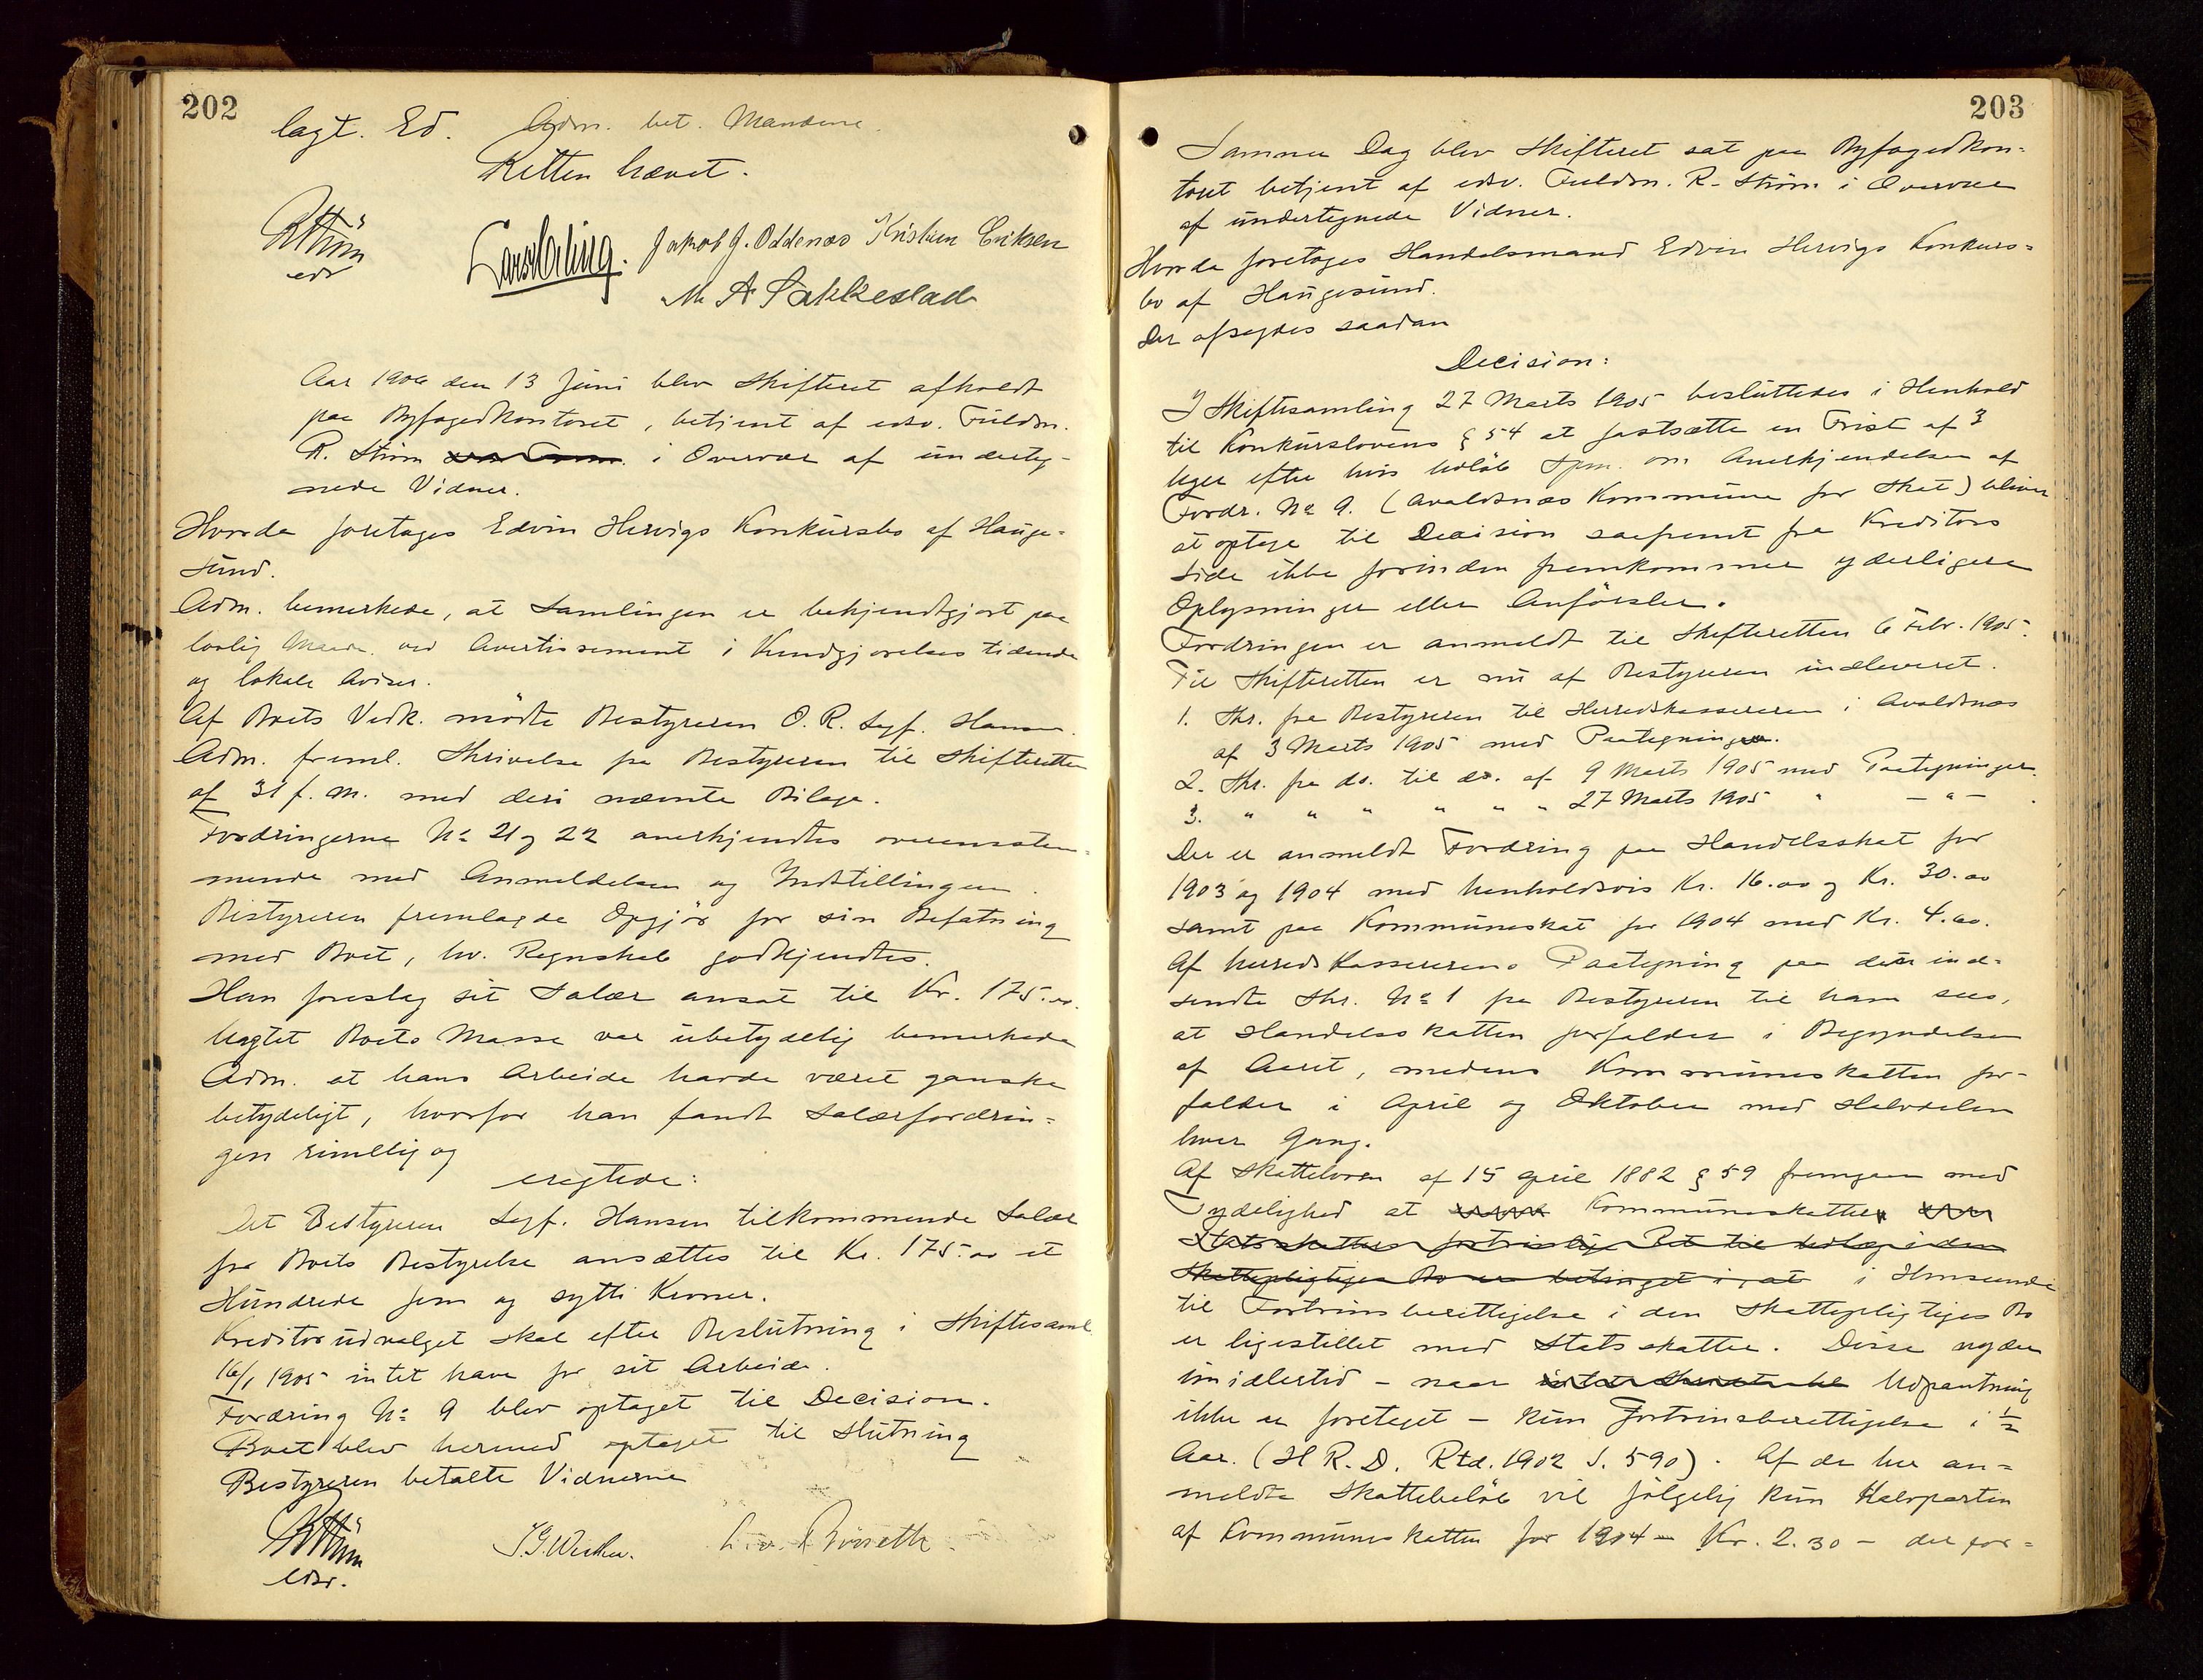 202
lagt. Ed. Adm. bet. Mændene.
Retten hævet.
RStrøm
edsv
Jakob J. Oddenæs Kristian Eriksen
M A Sakkestad
Aar 1906 den 13 Juni blev Skifteret afholdt
paa Byfogedkontoret, betjent af edsv. Fuldm.
R. Strøm i Overvær af underteg-
nede Vidner.
Hvorda foretoges Edvin Hervigs Konkursbo af Hauge-
sund.
Adm. bemerkede, at Samlingen er bekjendtgjort paa
lovlig Maade ved Avertissement i Kundgjørelsestidende
og lokale Aviser.
Af Boets Vedk. mødte Bestyreren O. R. Segf. Hansen.
Adm. freml. Skrivelse fra Bestyreren til Skifteretten
af 31 f. M. med deri nævnte Bilage.
Fordringerne No 21 og 22 anerkjendtes overensstem-
mende med Anmeldelsen og Indstillingen.
Bestyreren fremlagde Opgjør for sin Befatning
med Boet, hv. Regnskab godkjendtes.
Han foreslog sit Salær ansat til Kr. 175.00.
Uagtet Boets Masse var ubetydelig bemerkede
Adm. at hans Arbeide havde været ganske
betydeligt, hvorfor han fandt Salærfordrin-
gen rimelig og
eragtede:
Det Bestyreren Segf. Hansen tilkommende Salær
for Boets Bestyrelse ansættes til Kr. 175.00 et
Hundrede fem og sytti Kroner.
Kreditorudvalget skal efter Beslutning i Skiftesaml.
16/1 1905 intet have for sit Arbeide.
Fordring No 9 blev optaget til Decision.
Boet blev hermed optaget til Slutning
Bestyreren betalte Vidnerne
RStrøm
edsv.
203
Samme Dag blev Skifteret sat paa Byfogedkon-
toret betjent af edsv. Fuldm. R. Strøm i Overvær
af undertegnede Vidner.
Hvorda foretoges Handelsmand Edvin Hervigs Konkurs-
bo af Haugesund.
Der afsagdes saadan
Decision:
I Skiftesamling 27 Marts 1905 besluttedes i Henhold
til Konkurslovens § 54 at fastsætte en Frist af 3
Uger efter hvis Udløb Spm. om Anerkjendelsen af
Fordr. No 9. (Avaldsnæs Kommune for Skat) bliver
at optage til Decision saafremt fra Kreditors
Side ikke forinden fremkommer yderligere
Oplysninger eller Anførsler.
Fordringen er anmeldt til Skifteretten 6 Febr. 1905.
Til Skifteretten er nu af Bestyreren indleveret.
1. Skr. fra Bestyreren til Herredskassereren i Avaldsnæs
af 3 Marts 1905 med Paategning.
2. Skr. fra do. til do. af 9 Marts 1905 med Paategninger.
3. " " " " " " 27 Marts 1905 " — " — .
Der er anmeldt Fordring paa Handelsskat for
1903 og 1904 med henholdsvis Kr. 16.00 og Kr. 30.00
samt paa Kommuneskat for 1904 med Kr. 4.60.
Af herredskassererens Paategning paa den ind-
sendte Skr. No 1 fra Bestyreren til ham sees,
at Handelsskatten forfalder i Begyndelsen
af Aaret, medens Kommuneskatten for-
falder i April og Oktober med Halvdelen
hver Gang.
Af Skatteloven af 15 April 1882 § 59 fremgaar med
Tydelighed at Kommuneskatter
Statsskatters fortrinslige Ret til Udlæg i den
Skattepligtiges Bo er betinget i, at i Henseende
til Fortrinsberettigelse i den Skattepligtiges Bo
er ligestillet med Statsskatter. Disse nyder
imidlertid – naar Udpantning
ikke er foretaget – kun Fortrinsberettigelse i 1/2
Aar. (H R. D. Rtd. 1902 S. 590). Af de her an-
meldte Skattebeløb vil følgelig kun Halvparten
af Kommuneskatten for 1904 – Kr. 2.30 – der for-